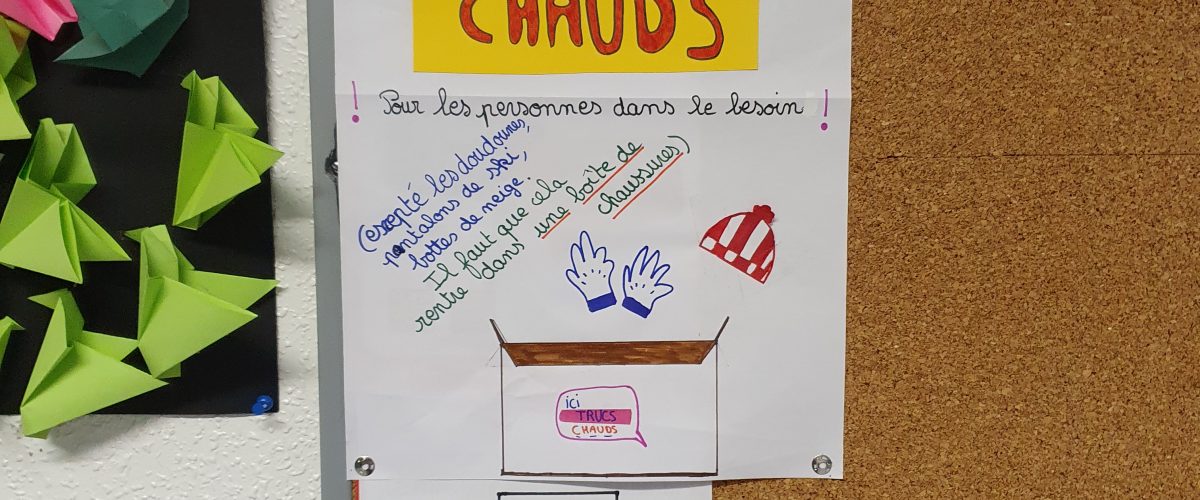 CHAUDS
! Pour les personnes dans le besoin !
(excepté les doudounes,
pantalons de ski,
bottes de neige.
Il faut que cela
rentre dans une boîte de
chaussures)
ici
TRUCS
CHAUDS